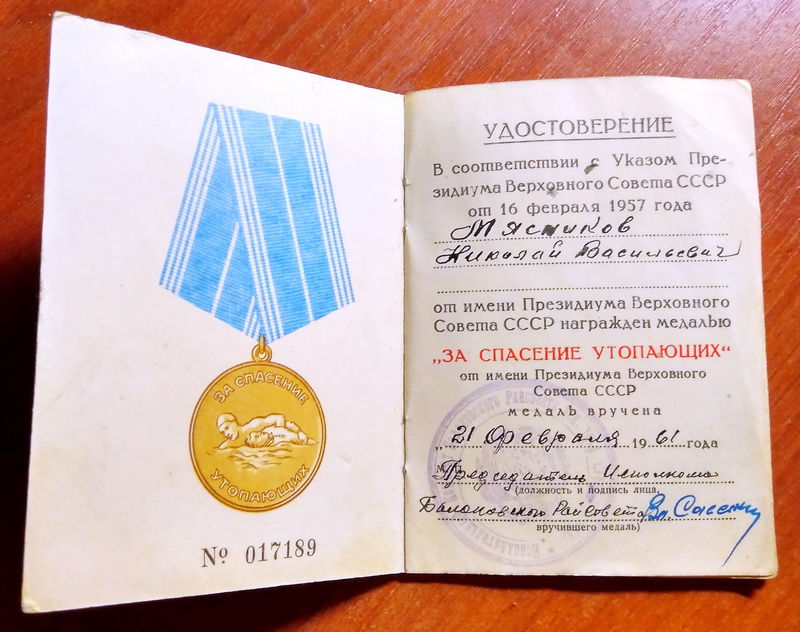 ЗА СПАСЕНИЕ
УТОПАЮЩИХ
№ 017189
УДОСТОВЕРЕНИЕ
В соответствии с Указом Пре-
зидиума Верховного Совета СССР
от 16 февраля 1957 года
Мясников
Николай Васильевич
от имени Президиума Верховного
Совета СССР награжден медалью
„ЗА СПАСЕНИЕ УТОПАЮЩИХ“
от имени Президиума Верховного
Совета СССР
медаль вручена
„21 февраля 1961 года
Председатель Исполкома
(должность и подпись лица,
Райсовета
вручившего медаль)